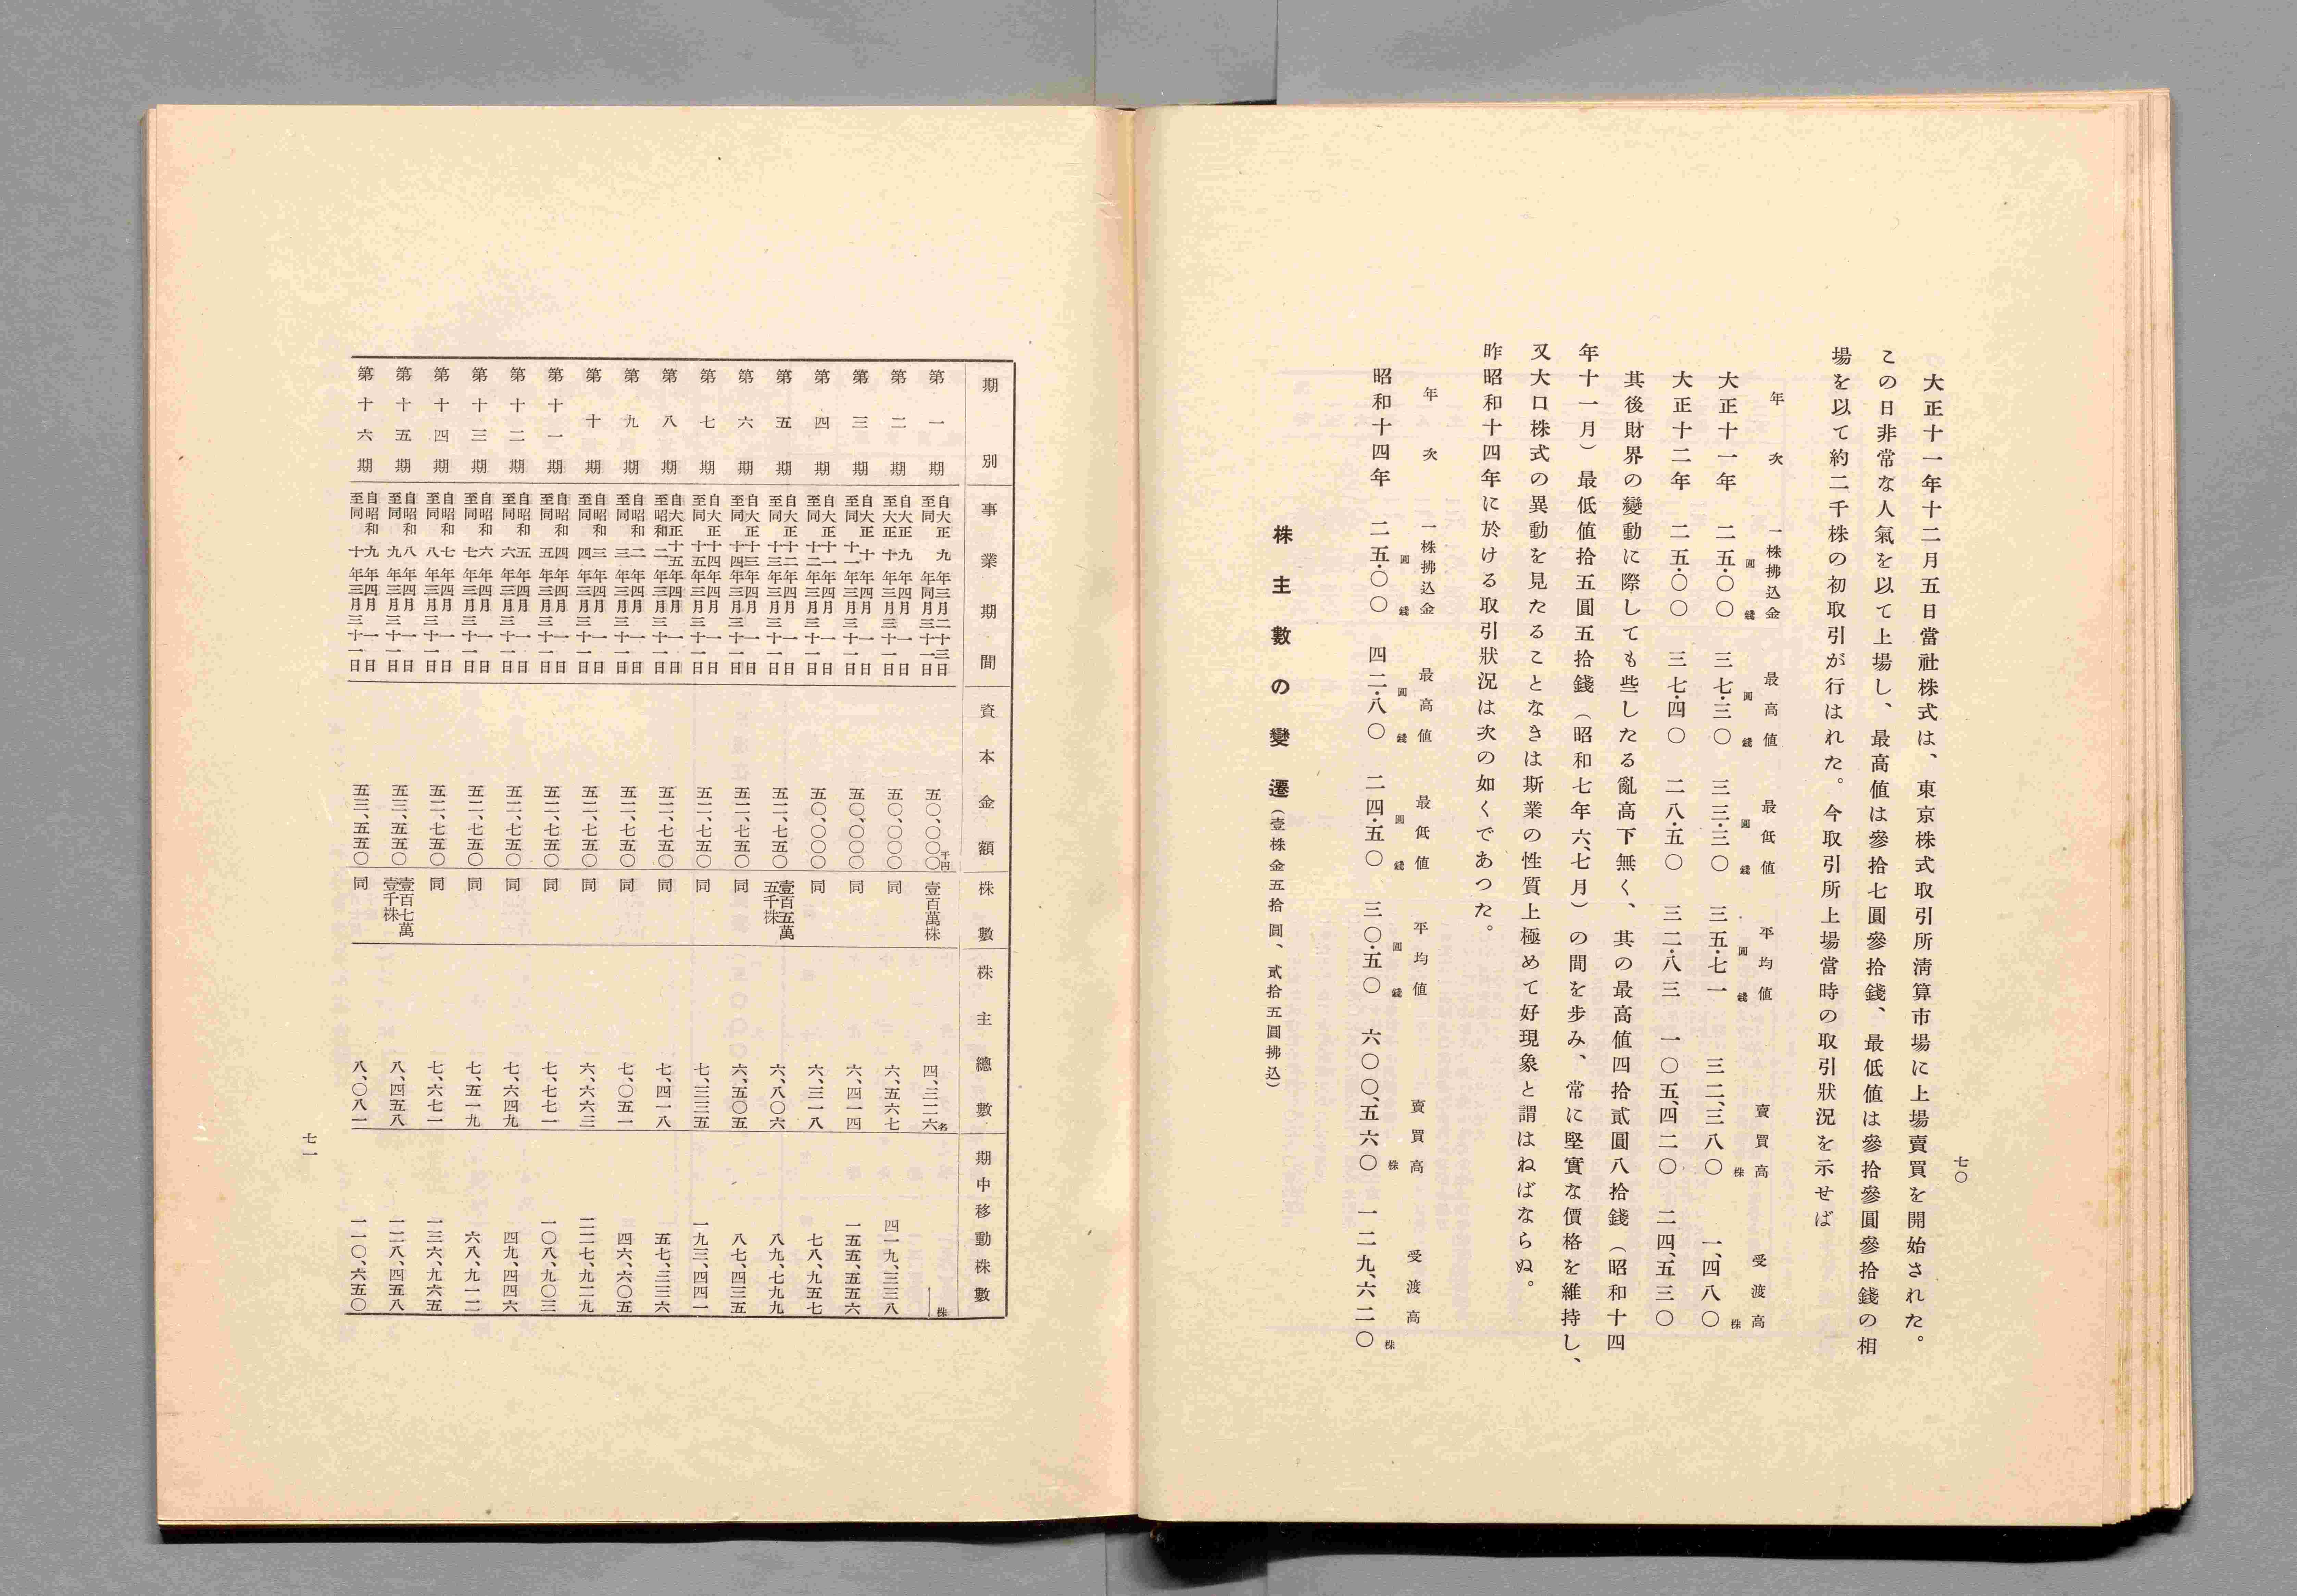 七〇
大正十一年十二月五日當社株式は、東京株式取引所淸算市場に上場賣買を開始された。
この日非常な人氣を以て上場し、最高値は參拾七圓參拾錢、最低値は參拾參圓參拾錢の相
場を以て約二千株の初取引が行はれた。今取引所上場當時の取引狀況を示せば
年次 一株拂込金 最高値 最低値 平均値 賣買高 受渡高
圓 錢 圓 錢 圓 錢 圓 錢 株 株
大正十一年 二五・〇〇 三七・三〇 三三・三〇 三五・七一 三二、三八〇 一、四八〇
大正十二年 二五・〇〇 三七・四〇 二八・五〇 三二・八三 一〇五、四二〇 二四、五三〇
其後財界の變動に際しても些したる亂高下無く、其の最高値四拾貳圓八拾錢（昭和十四
年十一月）最低値拾五圓五拾錢（昭和七年六、七月）の間を步み、常に堅實な價格を維持し、
又大口株式の異動を見たることなきは斯業の性質上極めて好現象と謂はねばならぬ。
昨昭和十四年に於ける取引狀況は次の如くであつた。
年次 一株拂込金 最高値 最低値 平均値 賣買高 受渡高
圓 錢 圓 錢 圓 錢 圓 錢 株 株
昭和十四年 二五・〇〇 四二・八〇 二四・五〇 三〇・五〇 六〇〇、五六〇 一二九、六二〇
株主數の變遷（壹株金五拾圓、貳拾五圓拂込）
期別 事業期間 資本金額 株數 株主總數 期中移動株數
第一期 自大正九年三月二十三日 至同年同月三十一日 五〇、〇〇〇千円 壹百萬株 四、三二六名 ―株
第二期 自大正九年四月一日 至大正十年三月三十一日 五〇、〇〇〇 同 六、五六七 四一九、三三八
第三期 自大正十年四月一日 至同十一年三月三十一日 五〇、〇〇〇 同 六、四一四 一五五、五五六
第四期 自大正十一年四月一日 至同十二年三月三十一日 五〇、〇〇〇 同 六、三一八 七八、九五七
第五期 自大正十二年四月一日 至同十三年三月三十一日 五二、七五〇 壹百五萬五千株 六、八〇六 八九、七九九
第六期 自大正十三年四月一日 至同十四年三月三十一日 五二、七五〇 同 六、五〇五 八七、四三五
第七期 自大正十四年四月一日 至同十五年三月三十一日 五二、七五〇 同 七、三三五 一九三、四四一
第八期 自大正十五年四月一日 至昭和二年三月三十一日 五二、七五〇 同 七、四一八 五七、三三六
第九期 自昭和二年四月一日 至同三年三月三十一日 五二、七五〇 同 七、〇五一 四六、六〇五
第十期 自昭和三年四月一日 至同四年三月三十一日 五二、七五〇 同 六、六六三 二二七、九二九
第十一期 自昭和四年四月一日 至同五年三月三十一日 五二、七五〇 同 七、七七一 一〇八、九〇三
第十二期 自昭和五年四月一日 至同六年三月三十一日 五二、七五〇 同 七、六四九 四九、四四六
第十三期 自昭和六年四月一日 至同七年三月三十一日 五二、七五〇 同 七、五一九 六八、九一二
第十四期 自昭和七年四月一日 至同八年三月三十一日 五二、七五〇 同 七、六七一 一三六、九六五
第十五期 自昭和八年四月一日 至同九年三月三十一日 五三、五五〇 壹百七萬壹千株 八、四五八 一二八、四五八
第十六期 自昭和九年四月一日 至同十年三月三十一日 五三、五五〇 同 八、〇八一 一一〇、六五〇
七一